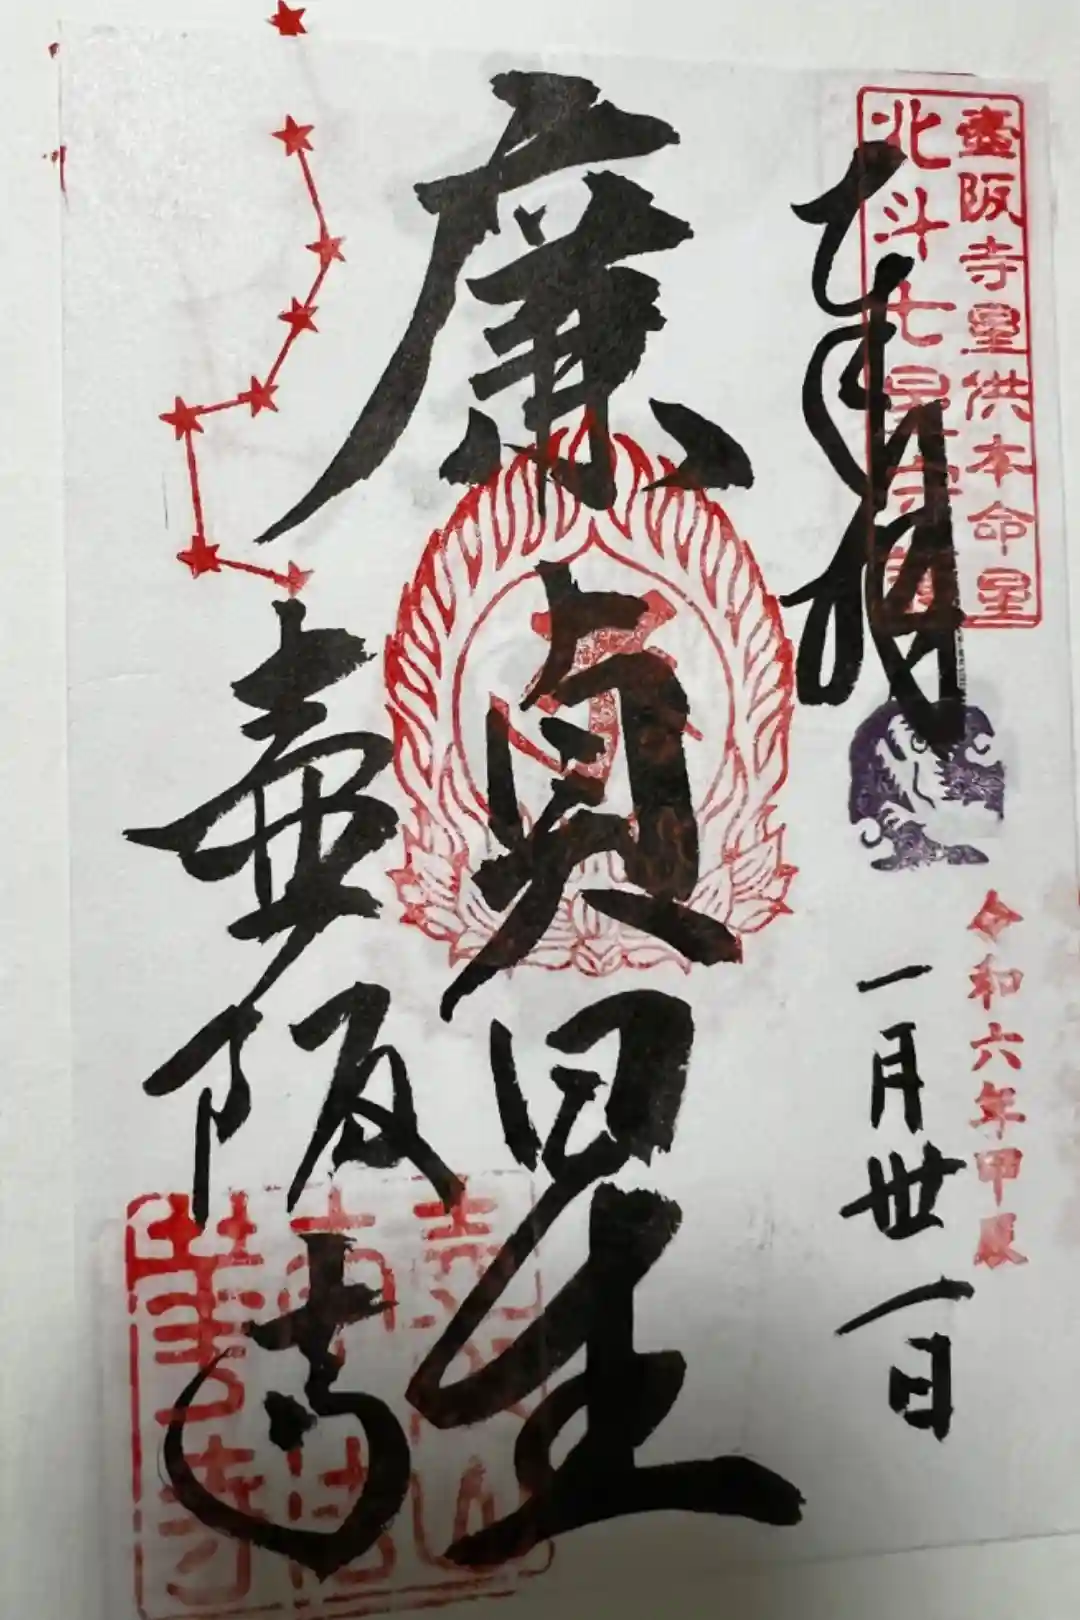 壷阪寺星供本命星
北斗七星守護
奉拝
令和六年甲辰
一月丗一日
廉貞星
壷阪寺